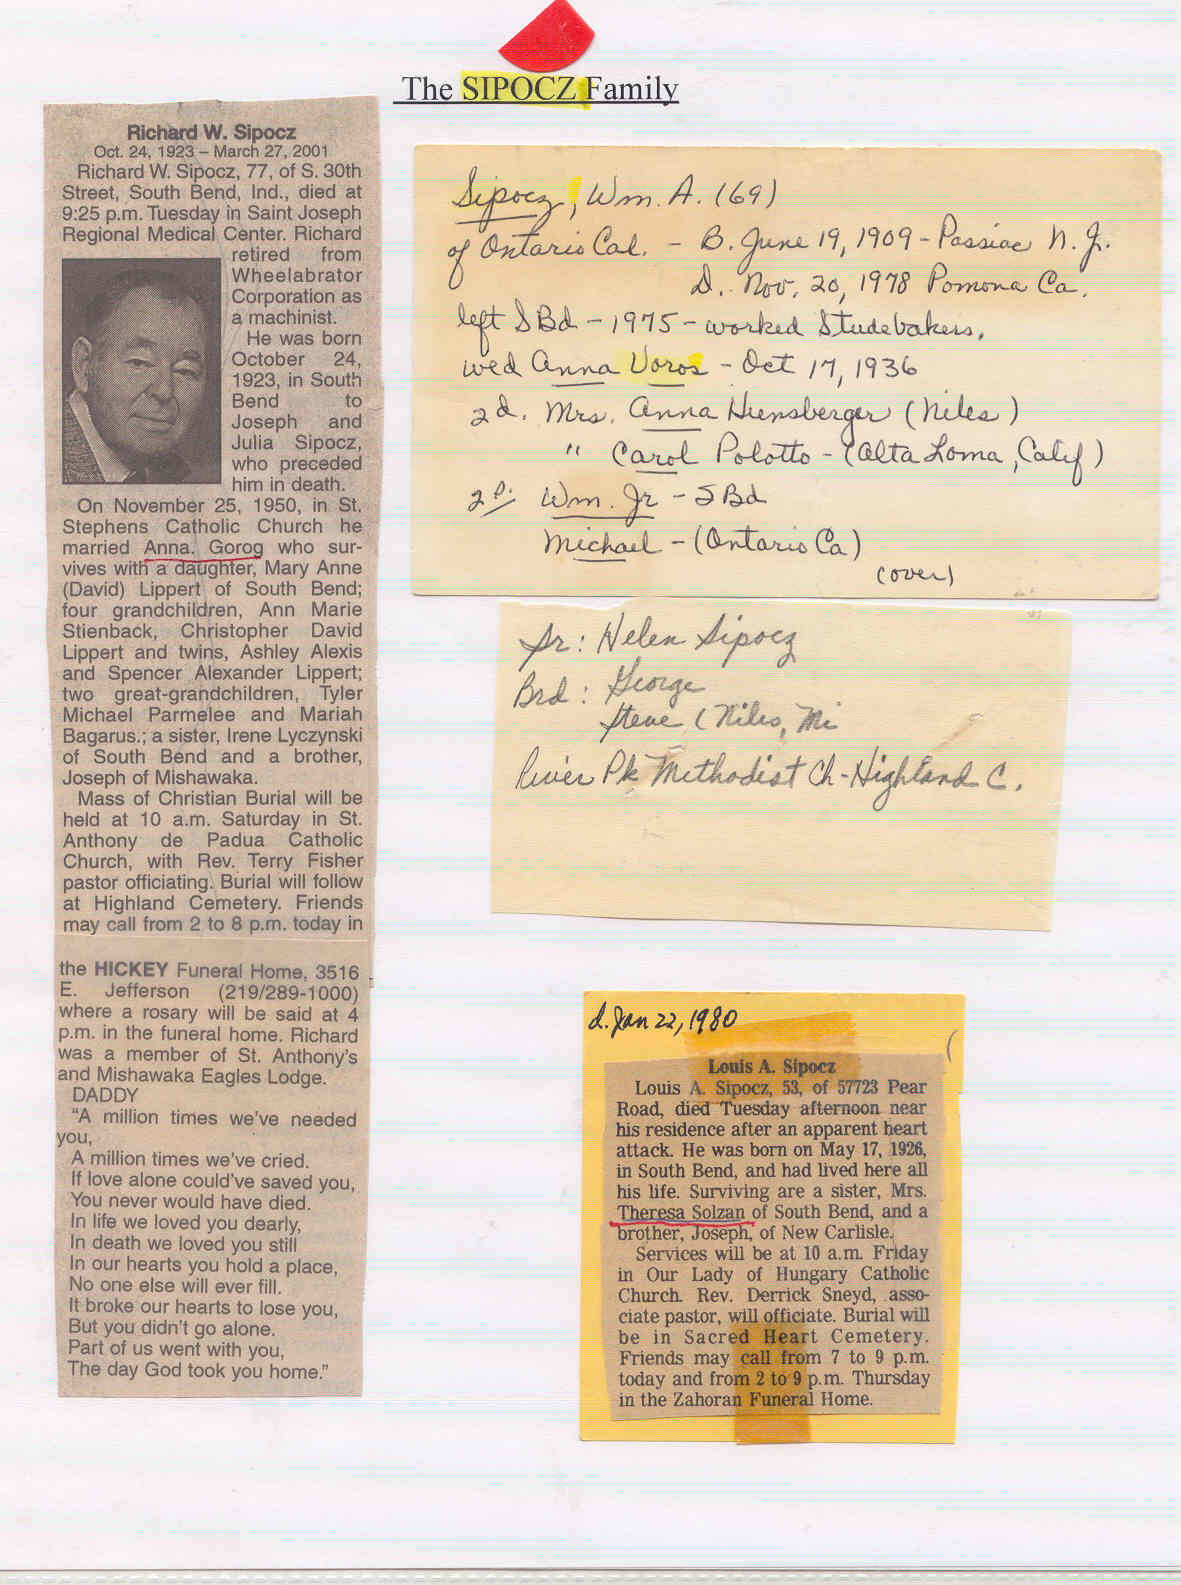 The SIPOCZ Family
Richard W. Sipocz
Oct. 24, 1923 – March 27, 2001
Richard W. Sipocz, 77, of S. 30th
Street, South Bend, Ind., died at
9:25 p.m. Tuesday in Saint Joseph
Regional Medical Center. Richard
retired from
Wheelabrator
Corporation as
a machinist.
He was born
October 24,
1923, in South
Bend to
Joseph and
Julia Sipocz,
who preceded
him in death.
On November 25, 1950, in St.
Stephens Catholic Church he
married Anna. Gorog who sur-
vives with a daughter, Mary Anne
(David) Lippert of South Bend;
four grandchildren, Ann Marie
Stienback, Christopher David
Lippert and twins, Ashley Alexis
and Spencer Alexander Lippert;
two great-grandchildren, Tyler
Michael Parmelee and Mariah
Bagarus.; a sister, Irene Lyczynski
of South Bend and a brother,
Joseph of Mishawaka.
Mass of Christian Burial will be
held at 10 a.m. Saturday in St.
Anthony de Padua Catholic
Church, with Rev. Terry Fisher
pastor officiating. Burial will follow
at Highland Cemetery. Friends
may call from 2 to 8 p.m. today in
the HICKEY Funeral Home, 3516
E. Jefferson (219/289-1000)
where a rosary will be said at 4
p.m. in the funeral home. Richard
was a member of St. Anthony's
and Mishawaka Eagles Lodge.
DADDY
"A million times we've needed
you,
A million times we've cried.
If love alone could've saved you,
You never would have died.
In life we loved you dearly,
In death we loved you still
In our hearts you hold a place,
No one else will ever fill.
It broke our hearts to lose you,
But you didn't go alone.
Part of us went with you,
The day God took you home."
Sipocz, Wm. A. (69)
of Ontario Cal. - B. June 19, 1909 - Passiac N.J.
D. Nov. 20, 1978 Pomona Ca.
left SBd - 1975 - worked Studebakers.
wed Anna Voros - Oct 17, 1936
2d. Mrs. Anna Hunsberger (Niles)
" Carol Polotto - (Alta Loma, Calif)
2 s. Wm. Jr - SBd
Michael - (Ontario Ca)
(over)
Sr: Helen Sipocz
Brd: George
Steve (Niles, Mi
River Pk Methodist Ch - Highland C.
d. Jan 22, 1980
Louis A. Sipocz
Louis A. Sipocz, 53, of 57723 Pear
Road, died Tuesday afternoon near
his residence after an apparent heart
attack. He was born on May 17, 1926,
in South Bend, and had lived here all
his life. Surviving are a sister, Mrs.
Theresa Solzan of South Bend, and a
brother, Joseph, of New Carlisle.
Services will be at 10 a.m. Friday
in Our Lady of Hungary Catholic
Church. Rev. Derrick Sneyd, asso-
ciate pastor, will officiate. Burial will
be in Sacred Heart Cemetery.
Friends may call from 7 to 9 p.m.
today and from 2 to 9 p.m. Thursday
in the Zahoran Funeral Home.